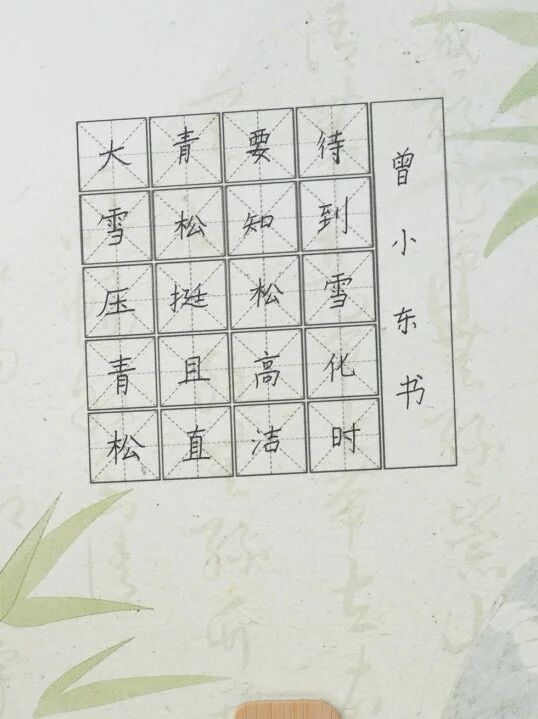 大雪压青松
青松挺且直
要知松高洁
待到雪化时
曾小东书